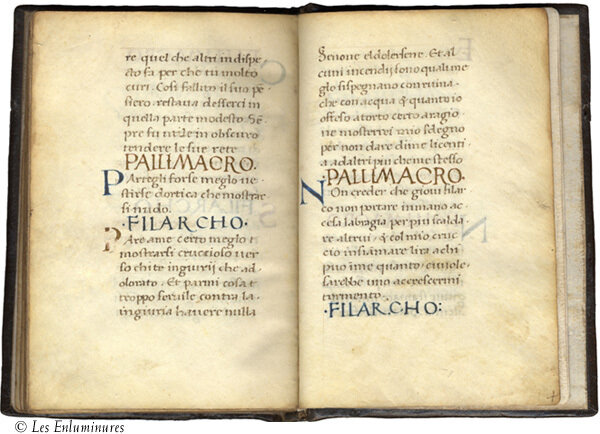 re quel che altri in dispe
cto fa per che tu molto
curi. Cosi fallito il suo pe
siero restaua desserci in
quella parte modesto Sē
pre fu utile in obscuro
tendere le sue rete
PALLIMACRO.
PArtegli forse meglo ue
stirse dortica che mostrar
si nudo.
·FILARCHO·
PAreame certo meglo
mostrarsi cruccioso uer
so chi te ingiurij che ad
olorato. Et parmi cosa
troppo seruile contra la
ingiuria hauere nulla
Senone el dolersene. Et al
cuni incendij sono qua li me
glo si spegnano con ruina
che con acqua & quanto io
offeso a torto certo a ragio
ne mostrerrei mio sdegno
per non dare dime licenti
a ad altri piu che me stesso
PALLIMACRO.
NOn creder che gioui filar
co non portare in mano ac
cesa la bragia per piu scalda
re altrui & col mio cruc
cio infiamare lira a chi
puo in me quanto e uuole
sarebbe uno accrescermi
tormento.
·FILARCHO:
© Les Enluminures